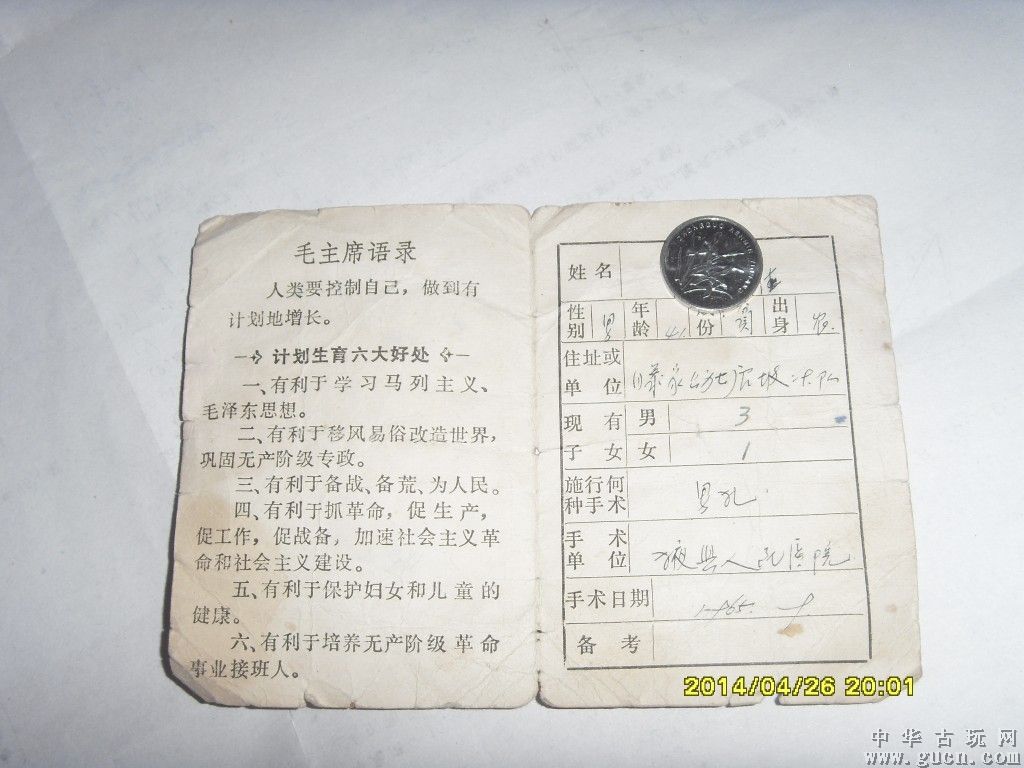 毛主席语录
人类要控制自己，做到有
计划地增长。
计划生育六大好处
一、有利于学习马列主义、
毛泽东思想。
二、有利于移风易俗改造世界，
巩固无产阶级专政。
三、有利于备战、备荒、为人民。
四、有利于抓革命，促生产，
促工作，促战备，加速社会主义革
命和社会主义建设。
五、有利于保护妇女和儿童的
健康。
六、有利于培养无产阶级革命
事业接班人。
姓名
性别 男 年龄 41 份 出身
住址或单位
现有子女 男 3
女 1
施行何种手术
手术单位 掖县人民医院
手术日期 1965.
备考
2014/04/26 20:01
中华古玩网
www.gucn.com